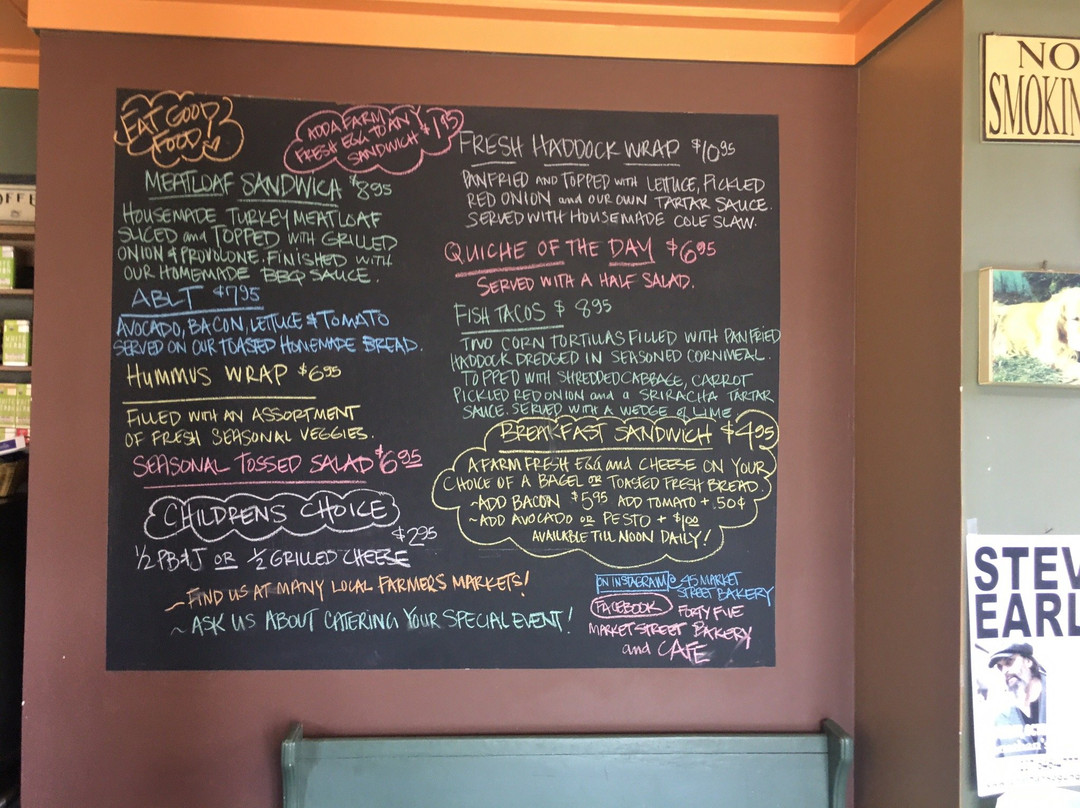 EAT GOOD
FOOD!
ADD A FARM
FRESH EGG TO ANY
SANDWICH $1.95
MEATLOAF SANDWICH $8.95
HOUSEMADE TURKEY MEATLOAF
SLICED and TOPPED WITH GRILLED
ONION & PROVOLONE. FINISHED WITH
OUR HOMEMADE BBQ SAUCE.
ABLT $7.95
AVOCADO, BACON, LETTUCE & TOMATO
SERVED ON OUR TOASTED HOMEMADE BREAD.
HUMMUS WRAP $6.95
FILLED WITH AN ASSORTMENT
OF FRESH SEASONAL VEGGIES.
SEASONAL TOSSED SALAD $6.95
CHILDRENS CHOICE
$2.95
1/2 PB&J OR 1/2 GRILLED CHEESE
FRESH HADDOCK WRAP $10.95
PANFRIED AND TOPPED WITH LETTUCE, PICKLED
RED ONION and OUR OWN TARTAR SAUCE.
SERVED WITH HOUSEMADE COLE SLAW.
QUICHE OF THE DAY $6.95
SERVED WITH A HALF SALAD.
FISH TACOS $8.95
TWO CORN TORTILLAS FILLED WITH PANFRIED
HADDOCK DREDGED IN SEASONED CORNMEAL.
TOPPED WITH SHREDDED CABBAGE, CARROT
PICKLED RED ONION and a SRIRACHA TARTAR
SAUCE. SERVED WITH A WEDGE of LIME
BREAKFAST SANDWICH $4.95
A FARM FRESH EGG and CHEESE ON YOUR
CHOICE OF A BAGEL OR TOASTED FRESH BREAD
~ADD BACON $5.95 ADD TOMATO + .50¢
~ADD AVOCADO OR PESTO + $1.00
AVAILABLE TILL NOON DAILY!
~ FIND US AT MANY LOCAL FARMERS MARKETS!
~ ASK US ABOUT CATERING YOUR SPECIAL EVENT!
ON INSTAGRAM @ 45 MARKET
STREET BAKERY
FACEBOOK FORTY FIVE
MARKET STREET BAKERY
and CAFE
NO
SMOKIN
STEV
EARL